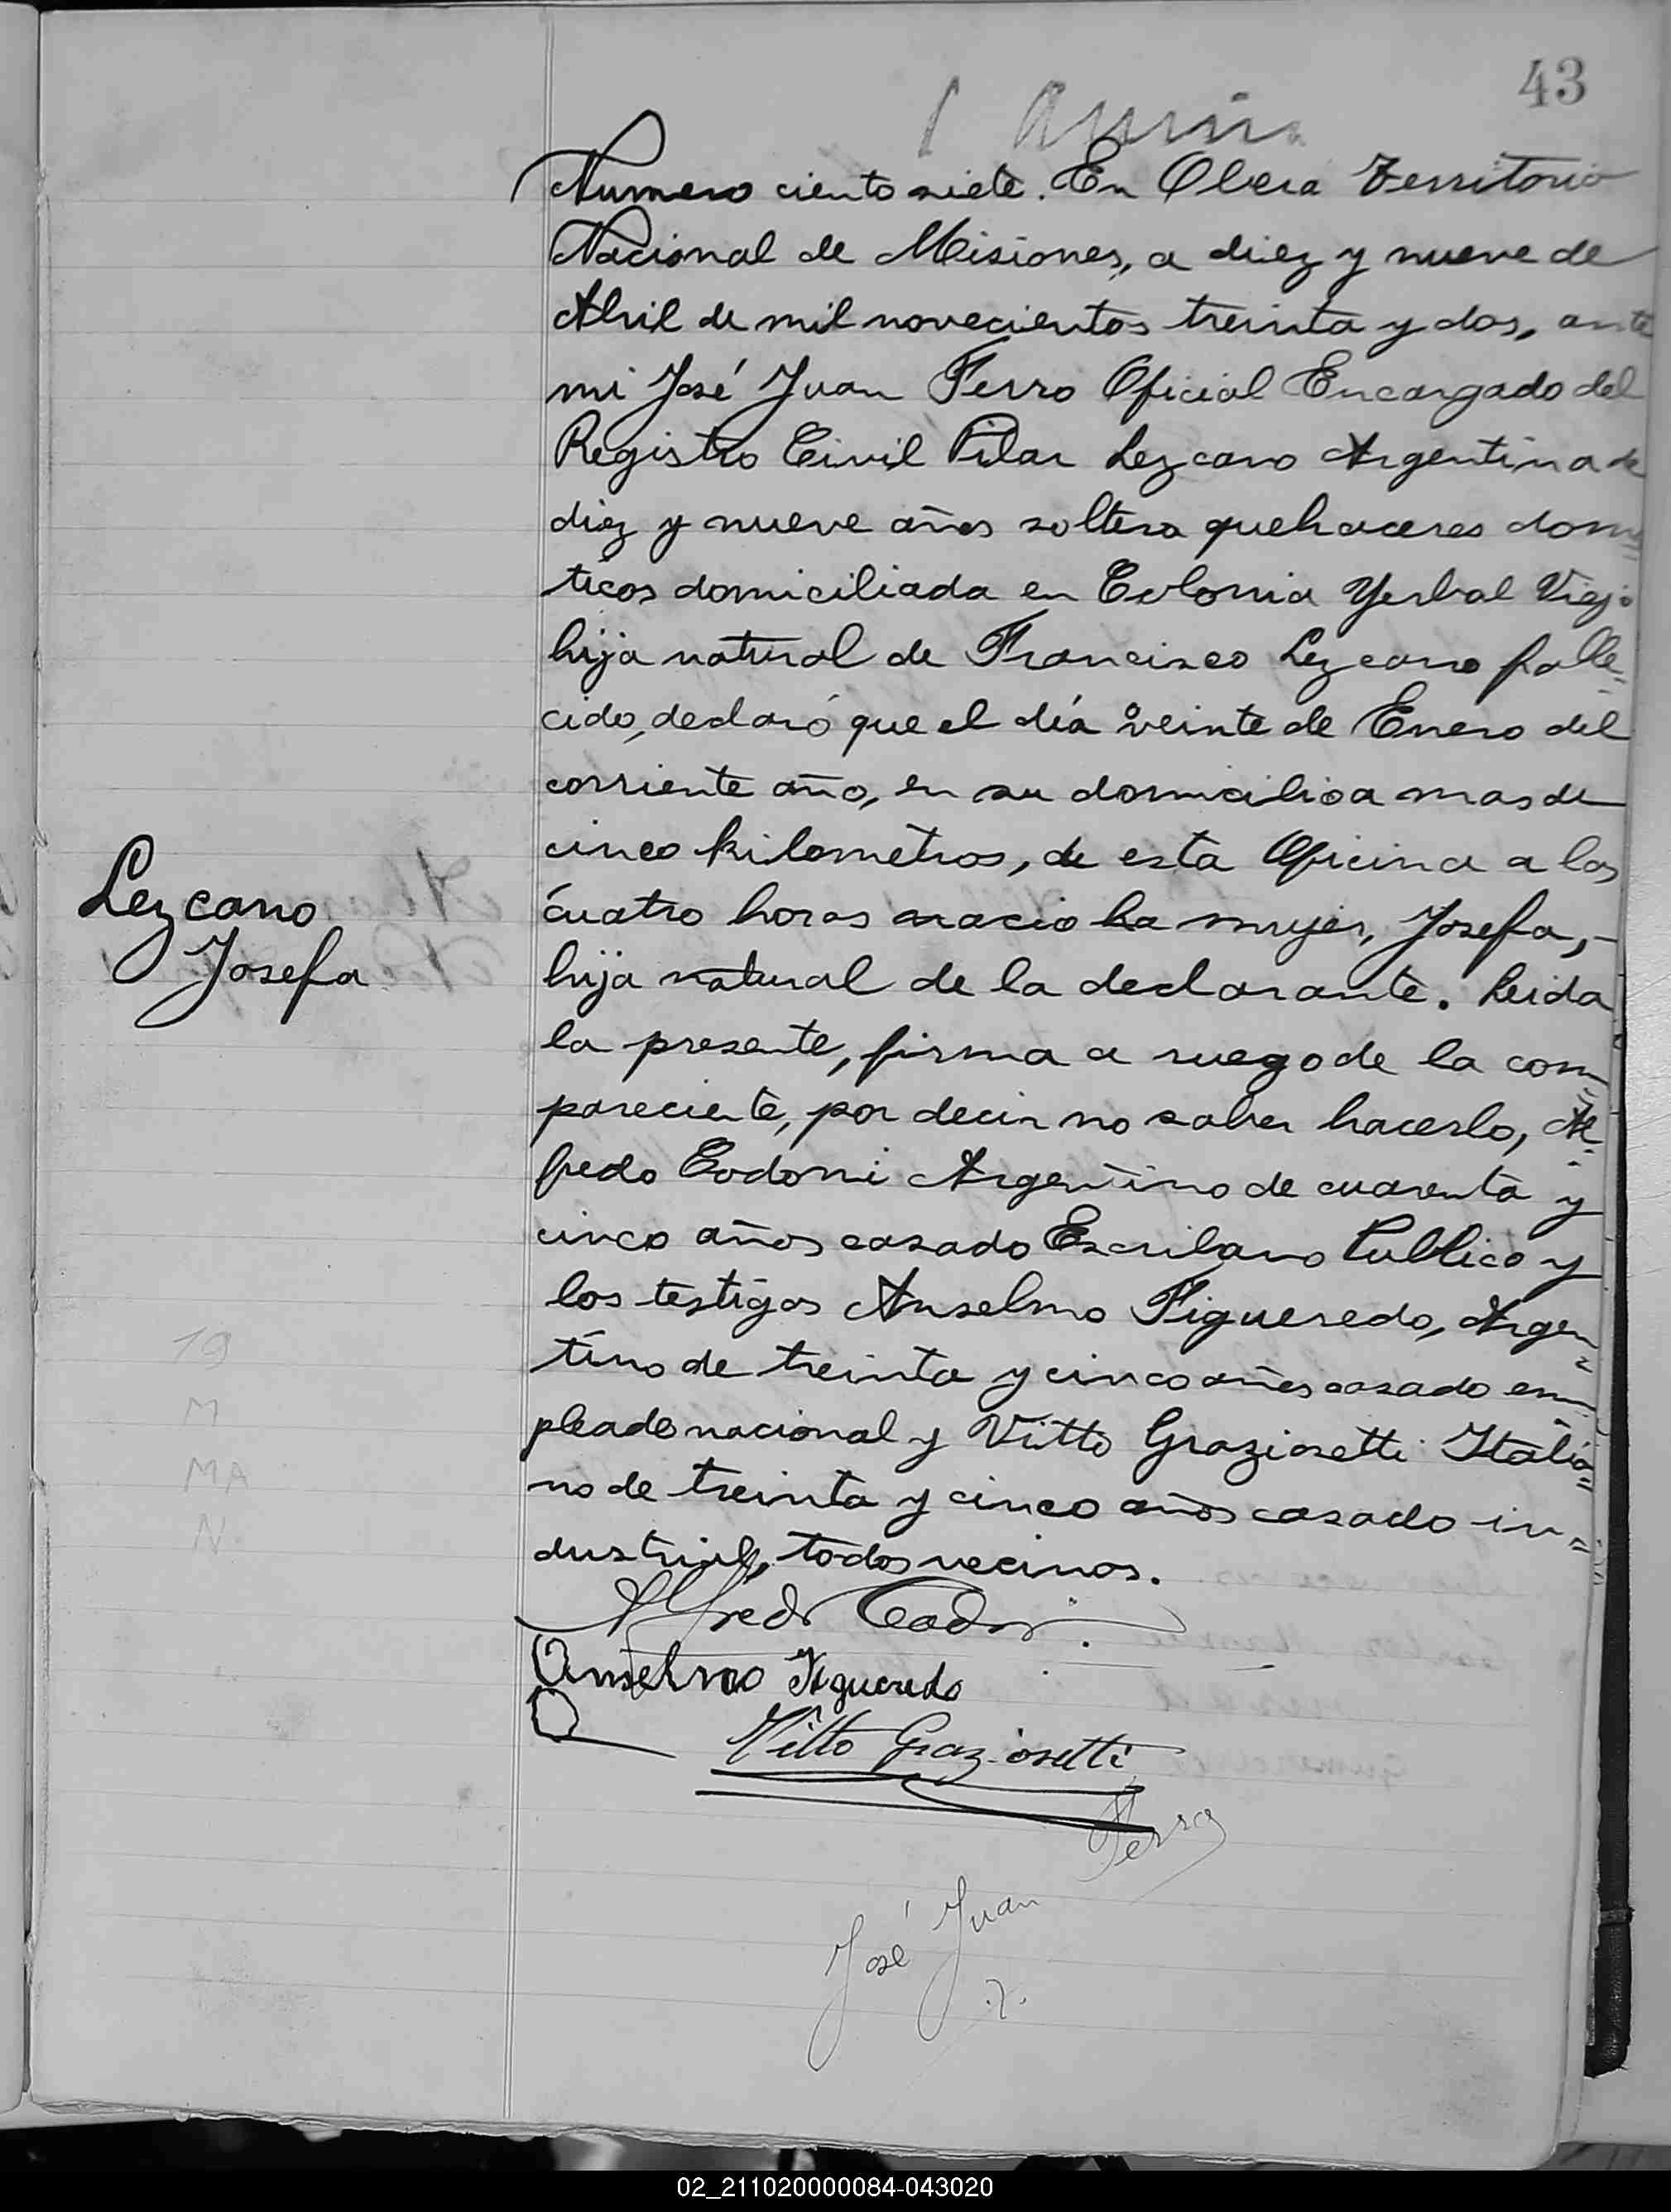 43
Numero ciento siete. En Obera Territorio
Nacional de Misiones, a diez y nueve de
Abril de mil novecientos treinta y dos, ante
mi José Juan Ferro Oficial Encargado del
Registro Civil Pilar Lezcano Argentina de
diez y nueve años soltera quehaceres domes
ticos domiciliada en Colonia Yerbal Viejo
hija natural de Francisco Lezcano falle-
cido, declaró que el día veinte de Enero del
corriente año, en su domicilio a mas de
cinco kilometros, de esta Oficina a las
cuatro horas nacio la mujer, Josefa,-
Lezcano
Josefa
hija natural de la declarante. Leida
la presente, firma a ruego de la com-
pareciente, por decir no saber hacerlo, Al-
fredo Codoni Argentino de cuarenta y
cinco años casado Escribano Publico y
los testigos Anselmo Figueredo, Argen-
tino de treinta y cinco años casado em-
pleado nacional y Vitto Graziosetti Italia-
no de treinta y cinco años casado in-
dustrial, todos vecinos.
19
M
MA
N
Alfredo Codoni
Anselmo Figueredo
Vitto Graziosetti
José Juan Ferro
02_211020000084-043020